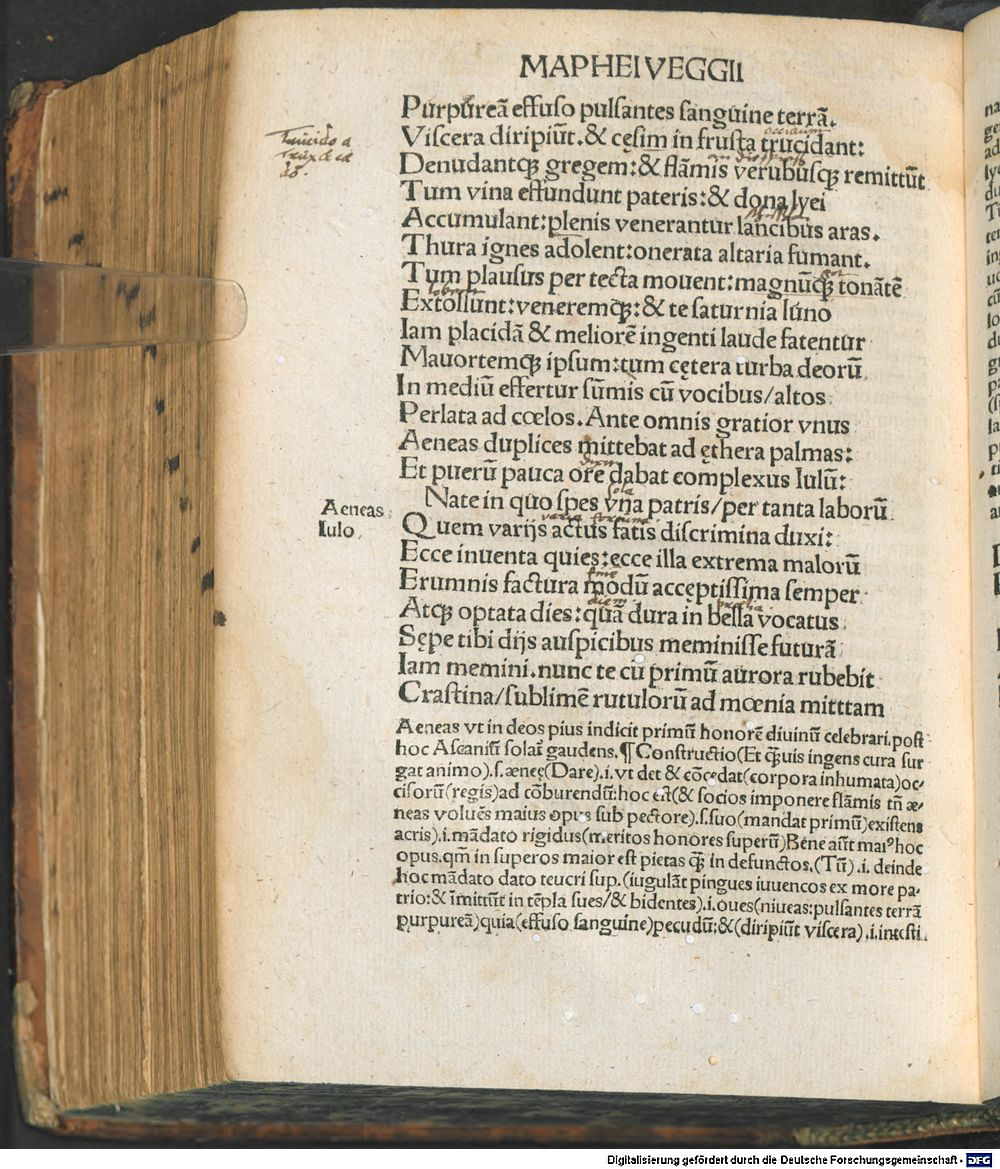 MAPHEI VEGGII
Purpureā effuso pulsantes sanguine terrā.
Viscera diripiūt.& cęsim in frusta trucidant:
Denudantqꝫ gregem:& flāmis verubusqꝫ remittūt
Tum vina effundunt pateris:& dona lyei
Accumulant:plenis venerantur lancibus aras.
Thura ignes adolent:onerata altaria fumant.
Tum plausus per tecta mouent:magnūqꝫ tonātē
Extollunt:veneremqꝫ:& te saturnia Iuno
Iam placidā & meliorē ingenti laude fatentur
Mauortemqꝫ ipsum:tum cętera turba deorū
In mediū effertur sūmis cū vocibus/altos
Perlata ad cœlos.Ante omnis gratior vnus
Aeneas duplices mittebat ad ęthera palmas:
Et puerū pauca ore dabat complexus Iulū:
Aeneas
Iulo
Nate in quo spes vna patris/per tanta laborū
Quem varijs actus fatis discrimina duxi:
Ecce inuenta quies:ecce illa extrema malorū
Erumnis factura modū acceptissima semper
Atqꝫ optata dies:quā dura in bella vocatus
Sępe tibi dijs auspicibus meminisse futurā
Iam memini.nunc te cū primū aurora rubebit
Crastina/sublimē rutulorū ad mœnia mitttam
Aeneas vt in deos pius indicit primū honorē diuinū celebrari.post
hoc Ascaniū solat̄ gaudens.¶Constructio(Et qꝫuis ingens cura sur
gat animo).s.æneę(Dare).i.vt det & cōcedat(corpora inhumata)oc-
cisorū(regis)ad cōburendū:hoc est(& socios imponere flāmis tn̄ æ-
neas voluēs maius opus sub pectore).s.suo(mandat primū)existens
acris).i.mādato rigidus(meritos honores superū)Bene aūt maiꝰ hoc
opus.qm̄ in superos maior est pietas qꝫ in defunctos.(Tū).i.deinde
hoc mādato dato teucri sup.(iugulāt pingues iuuencos ex more pa-
trio:& īmittūt in tēpla sues/& bidentes).i.oues(niueas:pulsantes terrā
purpureā)quia(effuso sanguine)pecudū:&(diripiūt viscera).i.intesti
Digitalisierung gefördert durch die Deutsche Forschungsgemeinschaft - DFG